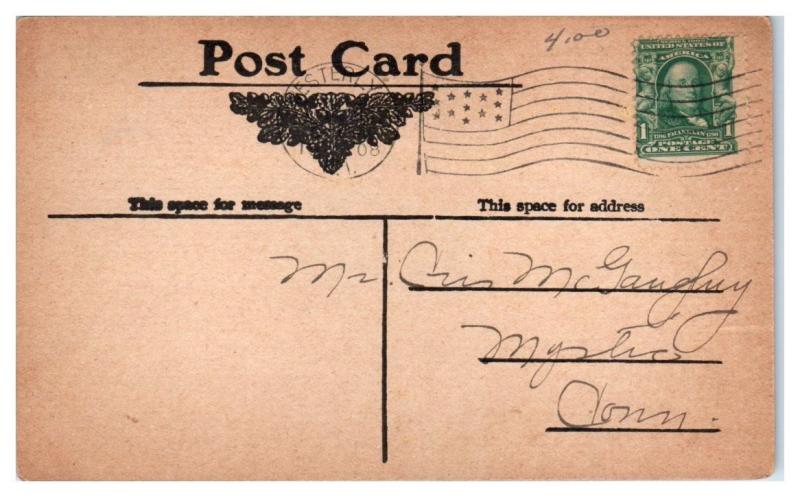 4.00
Post Card
SERIES 1902
UNITED STATES OF
AMERICA
1 1
FRANKLIN
POSTAGE
ONE CENT
WESTERLY
08
R.I.
This space for message
This space for address
Mr. Cris McGaughey
Mystic
Conn.